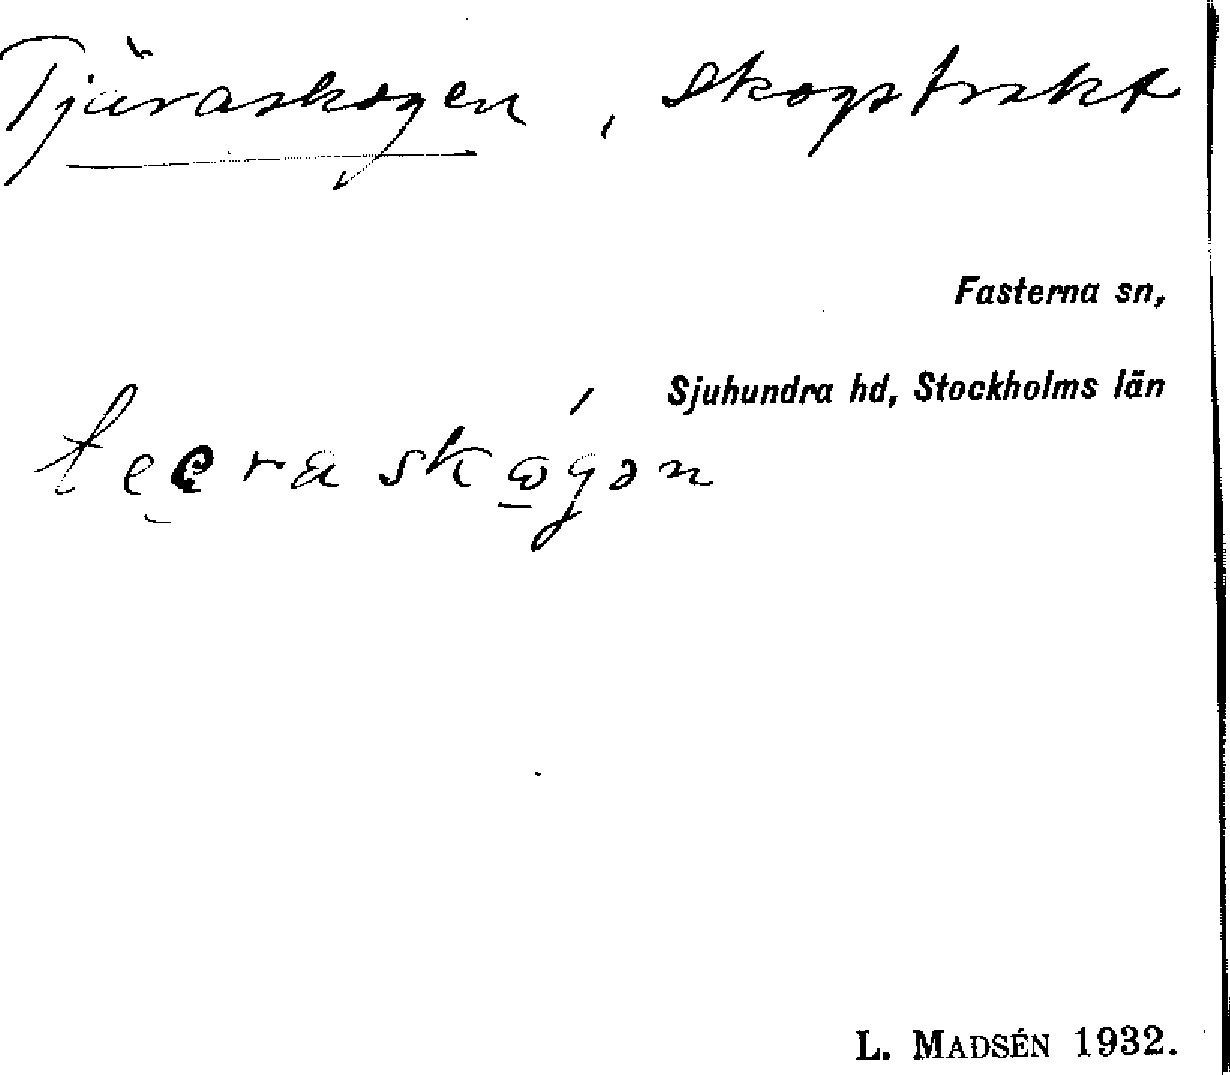 Tjäraskogen, skogstrakt
Fasterna sn,
Sjuhundra hd, Stockholms län
L. MADSÉN 1932.